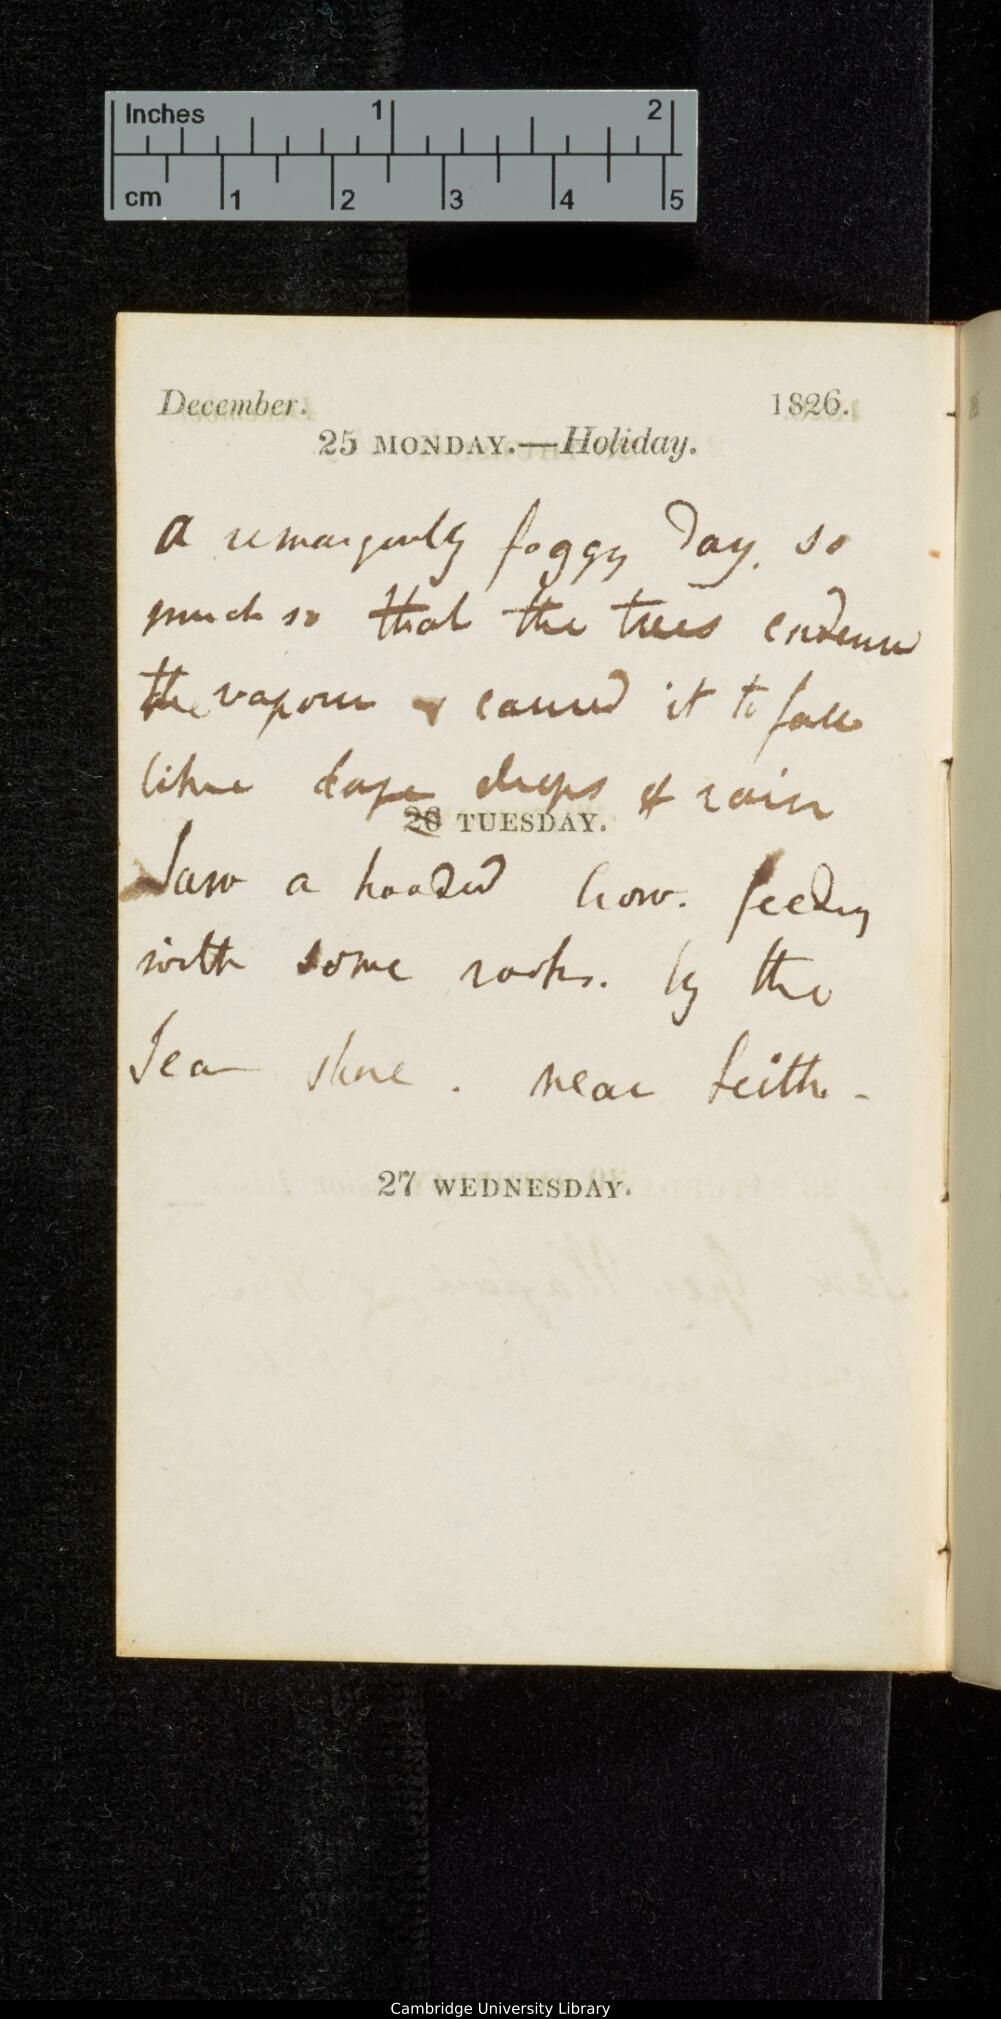 Inches 1 2
cm 1 2 3 4 5
December. 1826.
25 MONDAY.—Holiday.
A foggy Day. so
much so that the trees condensed
the vapour & caused it to fall
like large drops of rain
26 TUESDAY.
Saw a hooded Crow. feeding
with some rooks. by the
Sea shore. near Leith.-
27 WEDNESDAY.
Cambridge University Library